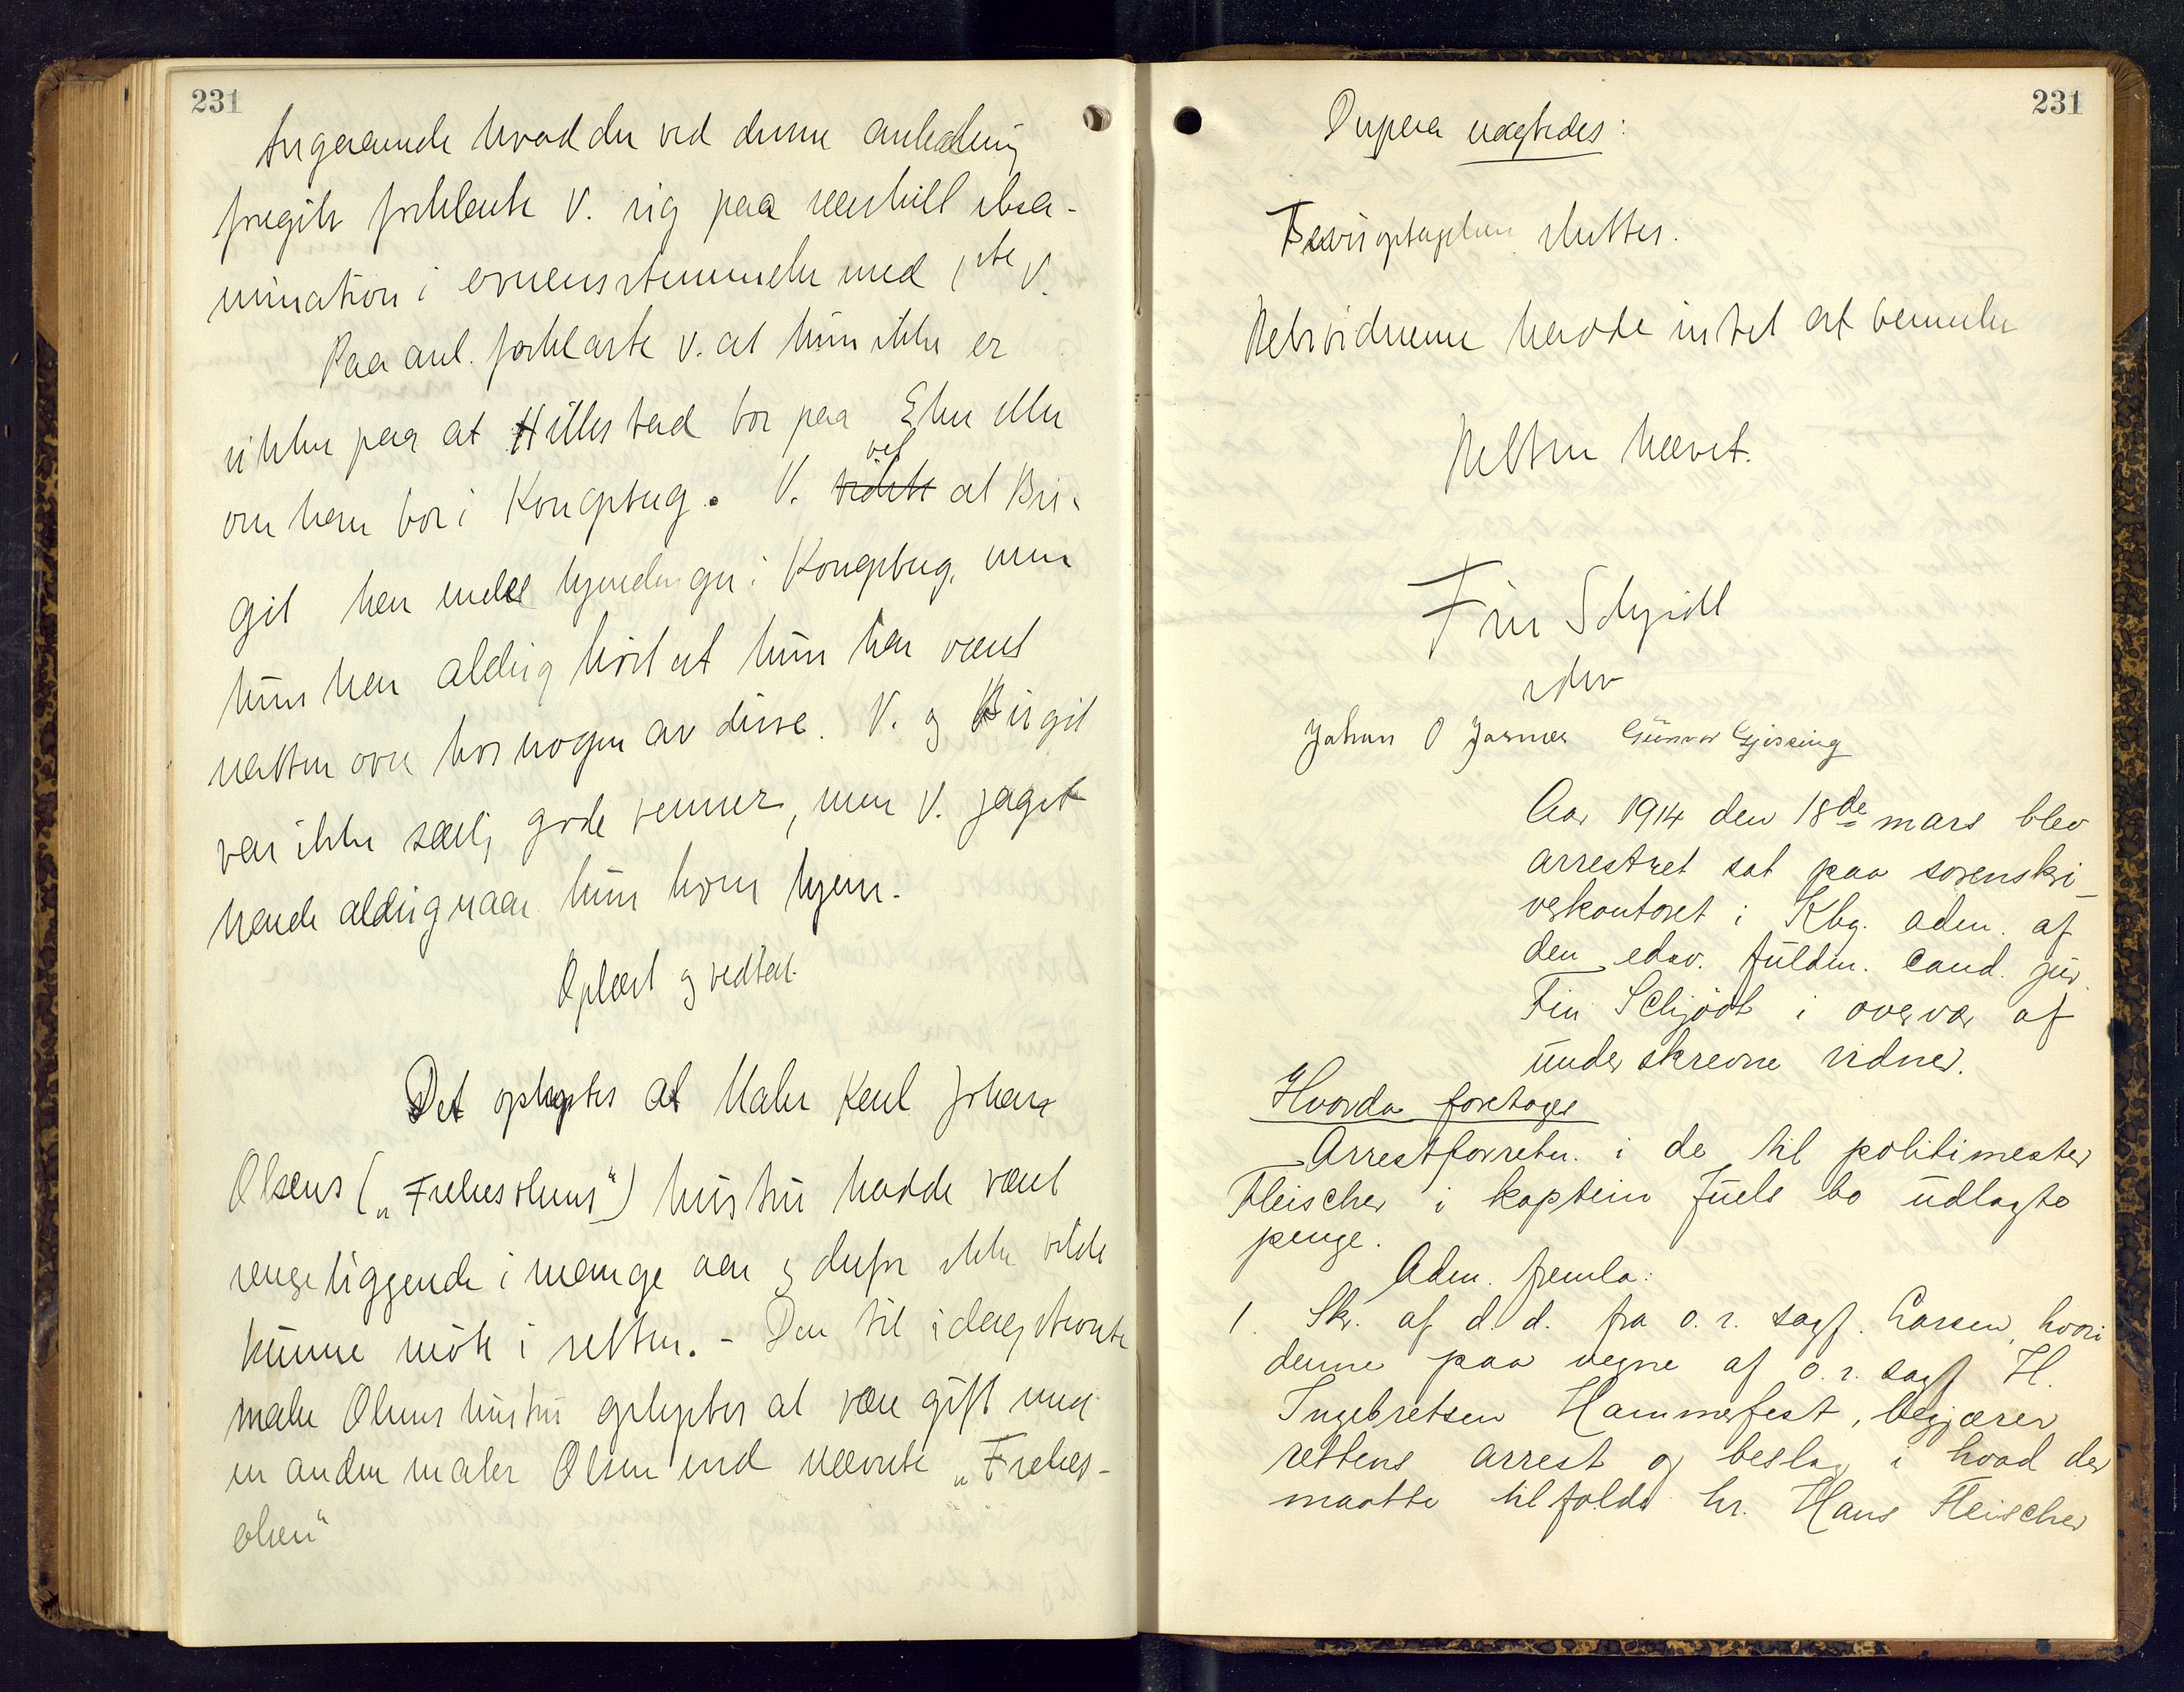 231
Angaaende hvad der ved denne anledning
foregik forklarte V. sig paa særskilt eksa-
mination i overensstemmelse med 1ste V.
Paa anl. forklarte V. at hun ikke er
sikker paa at Hillestad bor paa Eker eller
om han bor i Kongsberg. V. vidste vet at Bir-
git har endel kjendinger i Kongsberg, men
hun har aldrig hørt at hun har været
natten over hos nogen av disse. V. og Birgit
var ikke særlig gode venner, men V. jaget
hende aldrig naar hun kom hjem.
Oplæst og vedtat
Det oplystes at Maler Karl Johan
Olsens („Frelsesolsens“) hustru hadde været
sengeliggende i mange aar og derfor ikke vilde
kunne møte i retten. - Den til idag stevnte
maler Olsens hustru oplystes at være gift med
en anden maler Olsen end nævnte „Frelses-
olsen“
231
Derpaa vægtedes:
Bevisoptagelsen sluttes.
Retsvidnerne havde intet at bemerke
Retten hævet.
Fin Schjødt
edsv
Johan O Jarnes Gunnar Gjessing
Aar 1914 den 18de mars blev
arrestret sat paa sorenskri-
verkontoret i Kbg. adm. af
den edsv. fuldm. cand. jur.
Fin Schjødt i overvær af
underskrevne vidner.
Hvorda foretoges
Arrestforretn. i de til politimester
Fleischer i kaptein Juels bo udlagte
penge.
Adm. fremla:
1. Skr. af d. d. fra o. r. sagf. Larsen, hvori
denne paa vegne af o. r. sagf H.
Ingebretsen Hammerfest, begjærer
rettens arrest og beslag i hvad der
maatte tilfalde hr. Hans Fleischer